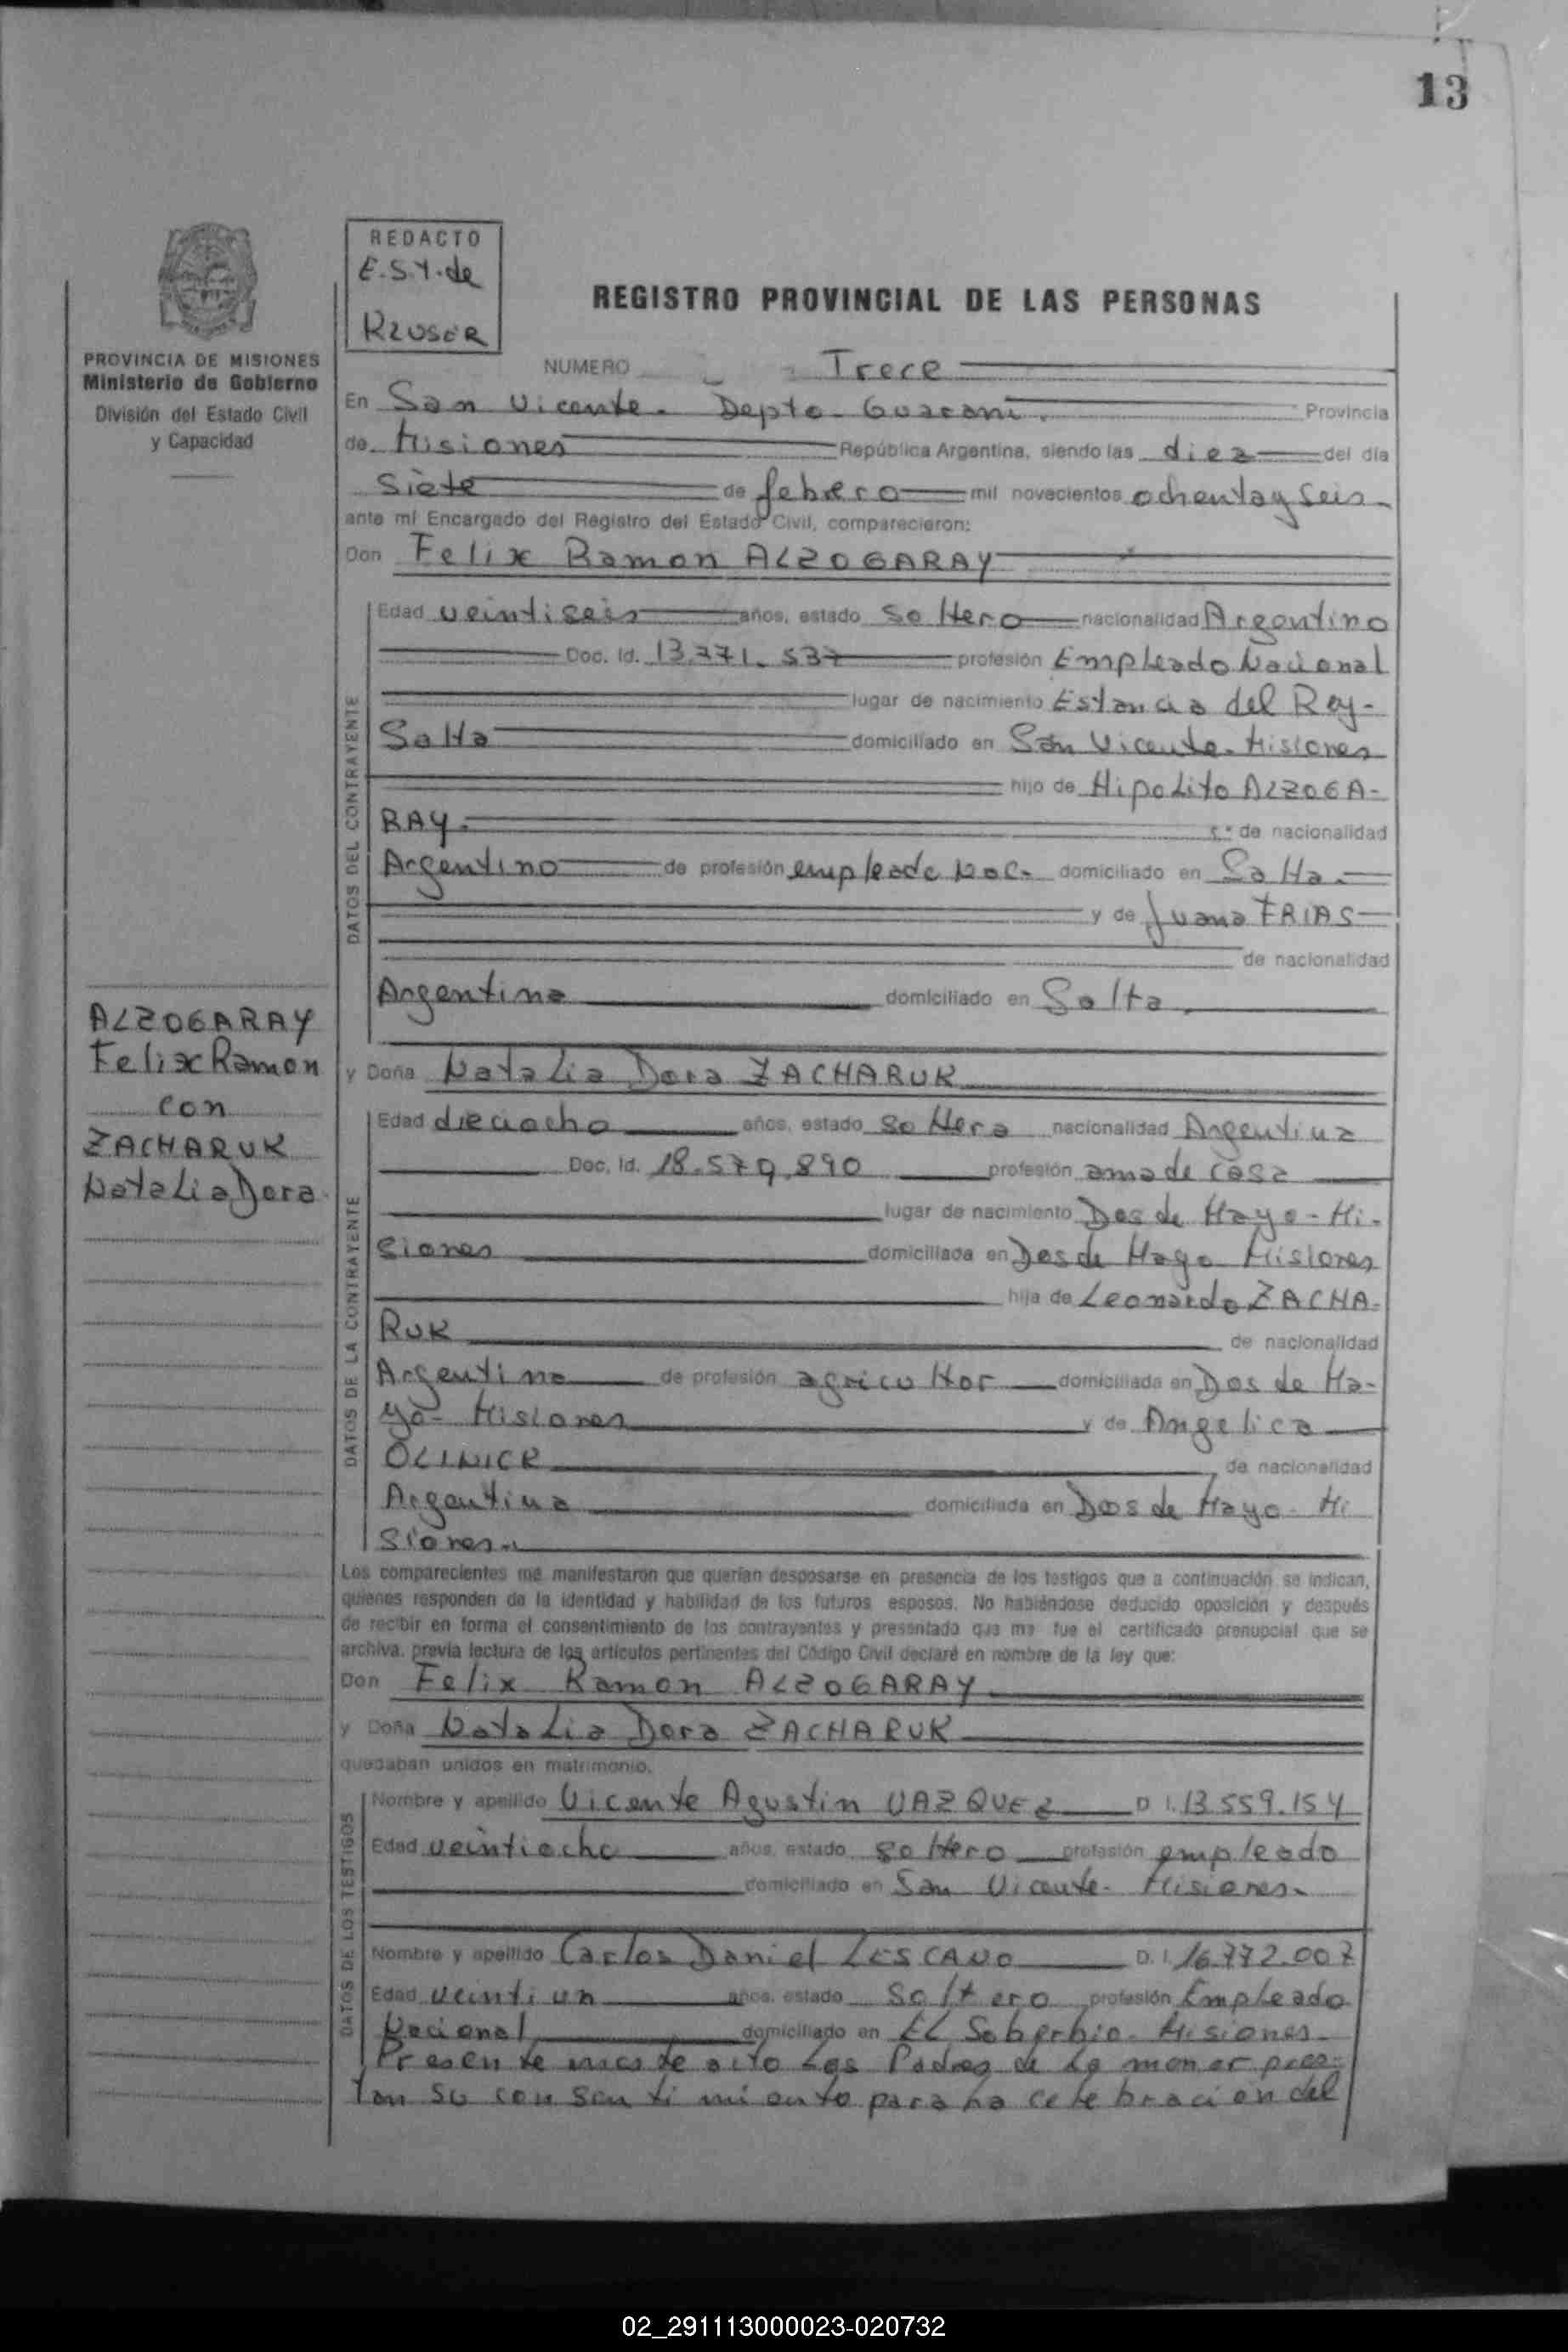 13
REDACTO
E.S.Y. de
KLUSER
REGISTRO PROVINCIAL DE LAS PERSONAS
PROVINCIA DE MISIONES
Ministerio de Gobierno
División del Estado Civil
y Capacidad
NUMERO Trece
En San Vicente. Depto. Guarani. Provincia
de Misiones República Argentina, siendo las diez del día
Siete de febrero mil novecientos ochentay seis
ante mí Encargado del Registro del Estado Civil, comparecieron:
Don Felix Ramon ALZOGARAY
DATOS DEL CONTRAYENTE
Edad veintiseis años, estado Soltero nacionalidad Argentino
Doc. Id. 13.771.537 profesión Empleado Nacional
lugar de nacimiento Estancia del Rey-
Salta domiciliado en San Vicente-Misiones
hijo de Hipolito ALZOGA-
RAY. de nacionalidad
Argentino de profesión empleado Nac. domiciliado en Salta.
y de Juana FRIAS
de nacionalidad
Argentina domiciliado en Salta.
ALZOGARAY
Felix Ramon
con
ZACHARUK
Natalia Dora
y Doña Natalia Dora ZACHARUK
DATOS DE LA CONTRAYENTE
Edad dieciocho años, estado Soltera nacionalidad Argentina
Doc. Id. 18.579.890 profesión ama de casa
lugar de nacimiento Dos de Mayo-Mi-
siones domiciliada en Dos de Mayo Misiones
hija de Leonardo ZACHA-
RUK de nacionalidad
Argentino de profesión agricultor domiciliada en Dos de Ma-
yo- Misiones y de Angelica
OLINICK de nacionalidad
Argentina domiciliada en Dos de Mayo- Mi
siones.
Los comparecientes me manifestaron que querían desposarse en presencia de los testigos que a continuación se indican,
quienes responden de la identidad y habilidad de los futuros esposos. No habiéndose deducido oposición y después
de recibir en forma el consentimiento de los contrayentes y presentado que me fue el certificado prenupcial que se
archiva, previa lectura de los artículos pertinentes del Código Civil declaré en nombre de la ley que:
Don Felix Ramon ALZOGARAY
y Doña Natalia Dora ZACHARUK
quedaban unidos en matrimonio.
DATOS DE LOS TESTIGOS
Nombre y apellido Vicente Agustin VAZQUEZ D.I. 13.559.154
Edad veintiocho años, estado soltero profesión empleado
domiciliado en San Vicente- Misiones.
Nombre y apellido Carlos Daniel LESCANO D.I. 16.772.007
Edad veintiun años, estado Soltero profesión Empleado
Nacional domiciliado en EL Soberbio- Misiones.
Presente en este acto Los Padres de La menor pres-
tan su consentimiento para la celebración del
02_291113000023-020732